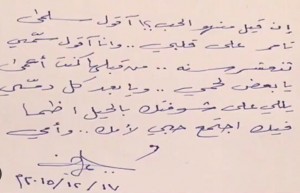 إن قيل منهو الحب؟! أقول سلمى
تامر على قلبي .. وأنا أقول سمّي
تنعشر سنه .. من قبلها كنت أعمى
يا بعض لحمي .. ويا بعد كل دمّي
يللي على شوفتك بالحيل أظما
فيك اجتمع حبي لأمك .. وأمي
٢٠١٥/١٢/١٧م